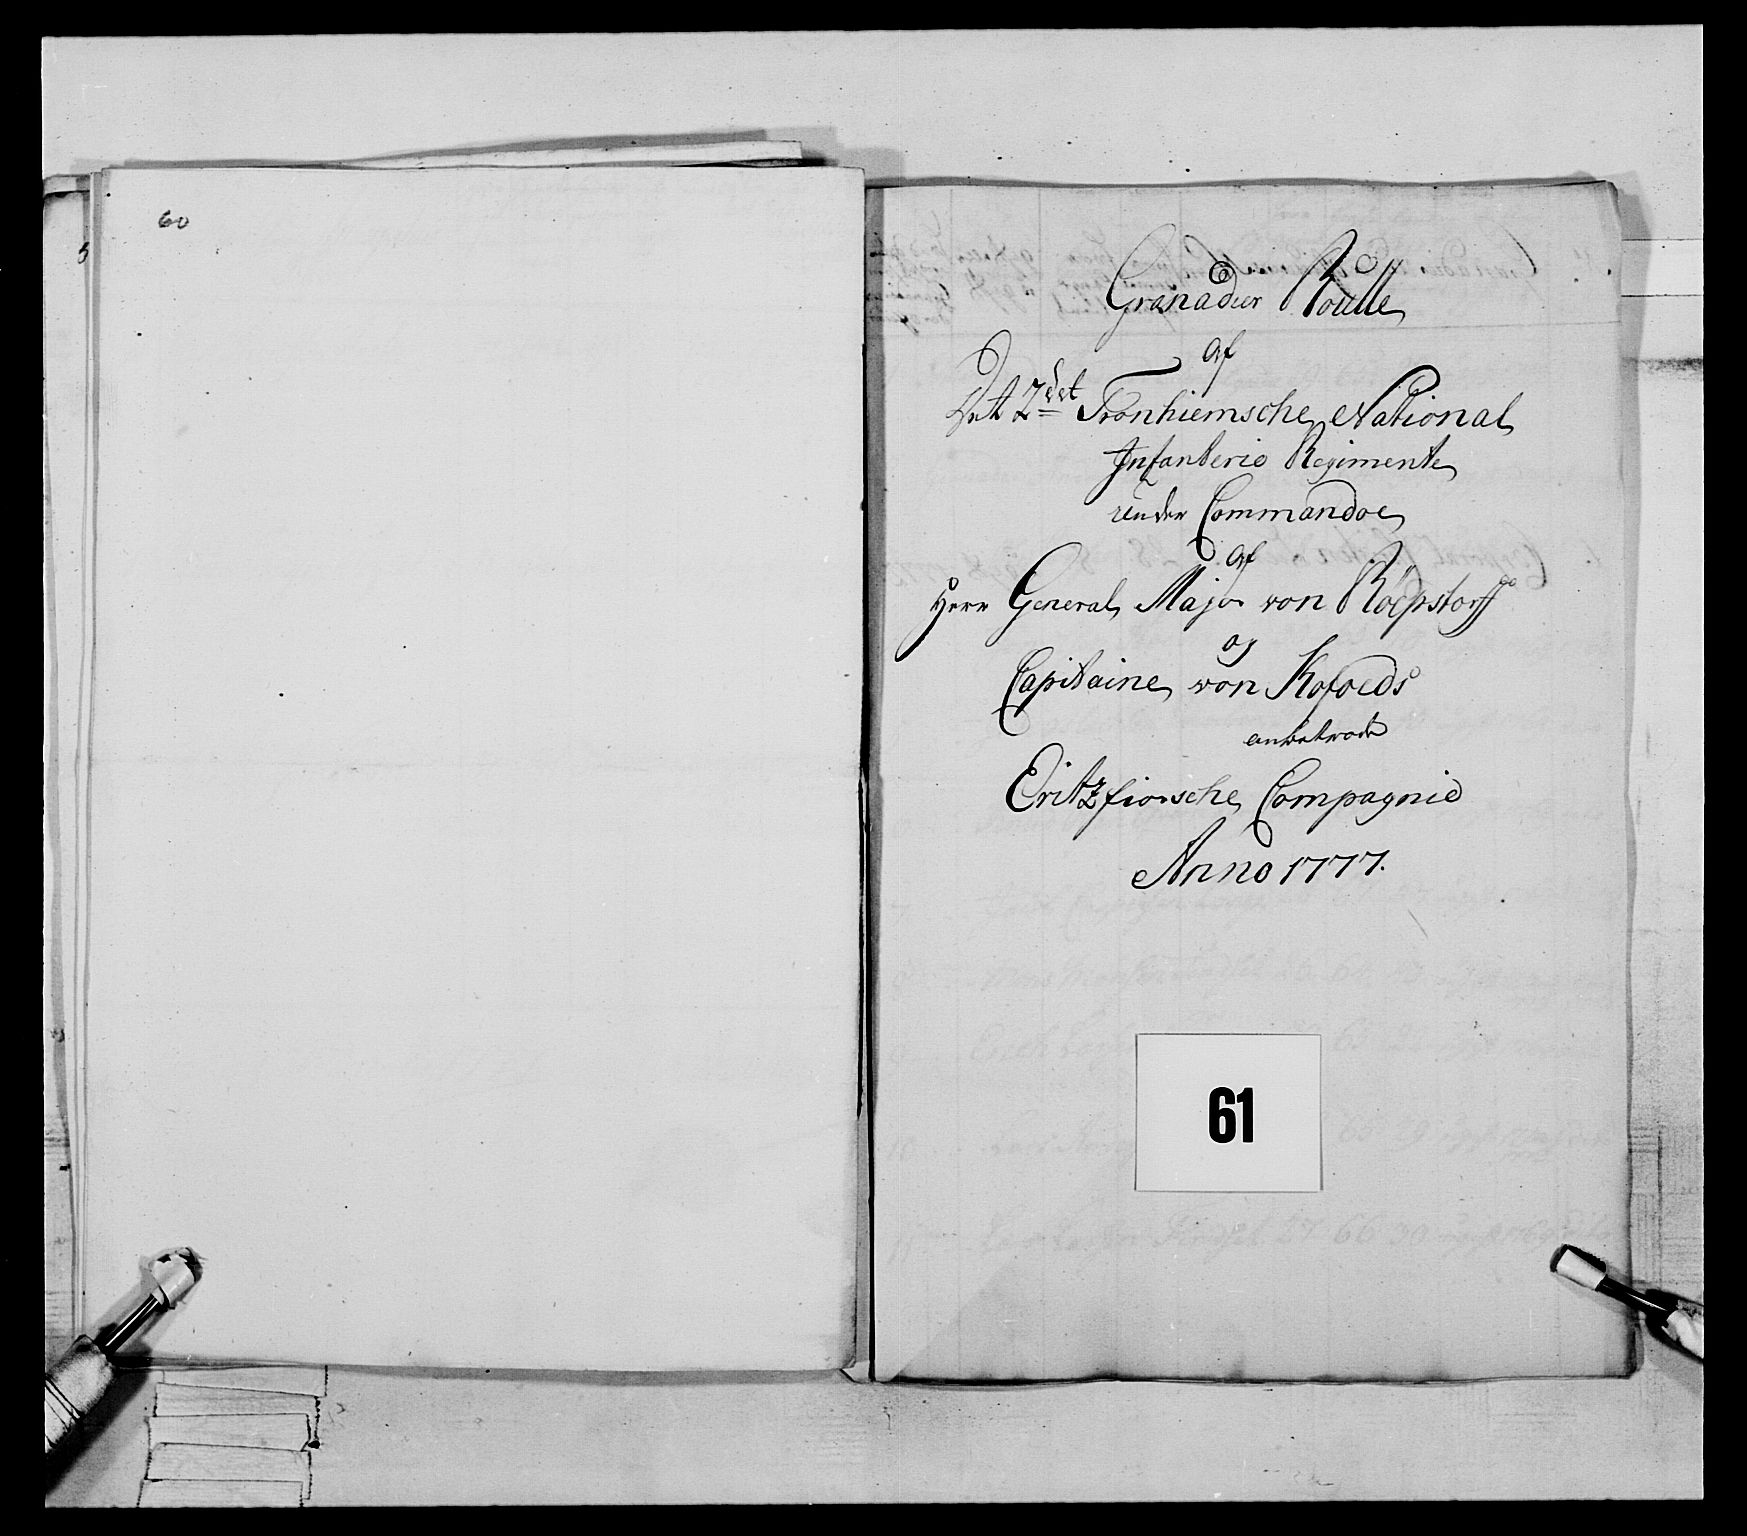 60
Granadier Roulle
af
Det 2det Tronhiemsche National
Infanterie Regimente
under Commandoe
af
Herr General Major von Röepstorff
og
Capitaine von Kofoeds
anbetroede
Eritzfiorsche Compagnie
Anno 1777.
61